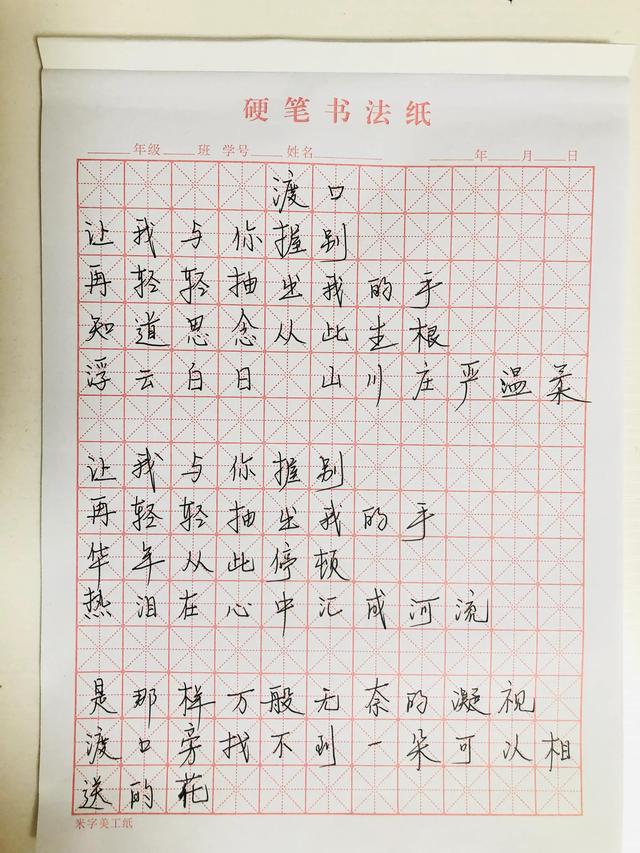 硬笔书法纸
年级 班 学号 姓名 年 月 日
渡口
让我与你握别
再轻轻抽出我的手
知道思念从此生根
浮云白日 山川庄严温柔
让我与你握别
再轻轻抽出我的手
华年从此停顿
热泪在心中汇成河流
是那样万般无奈的凝视
渡口旁找不到一朵可以相
送的花
米字美工纸